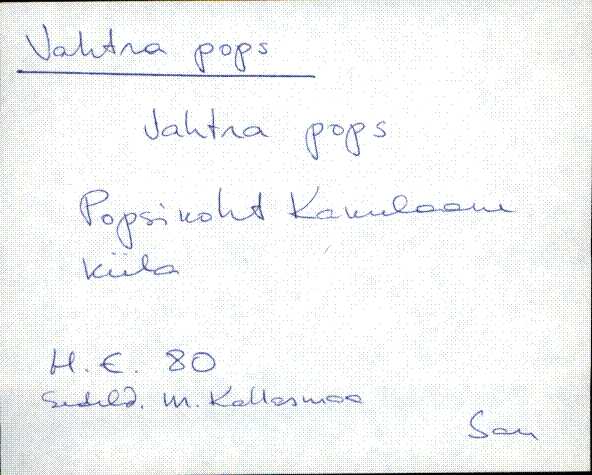 Vahtra pops
Vahtra pops
Popsikoht Kanulaane
küla
H. E. 80
Sedeld. M. Kallasmaa
San